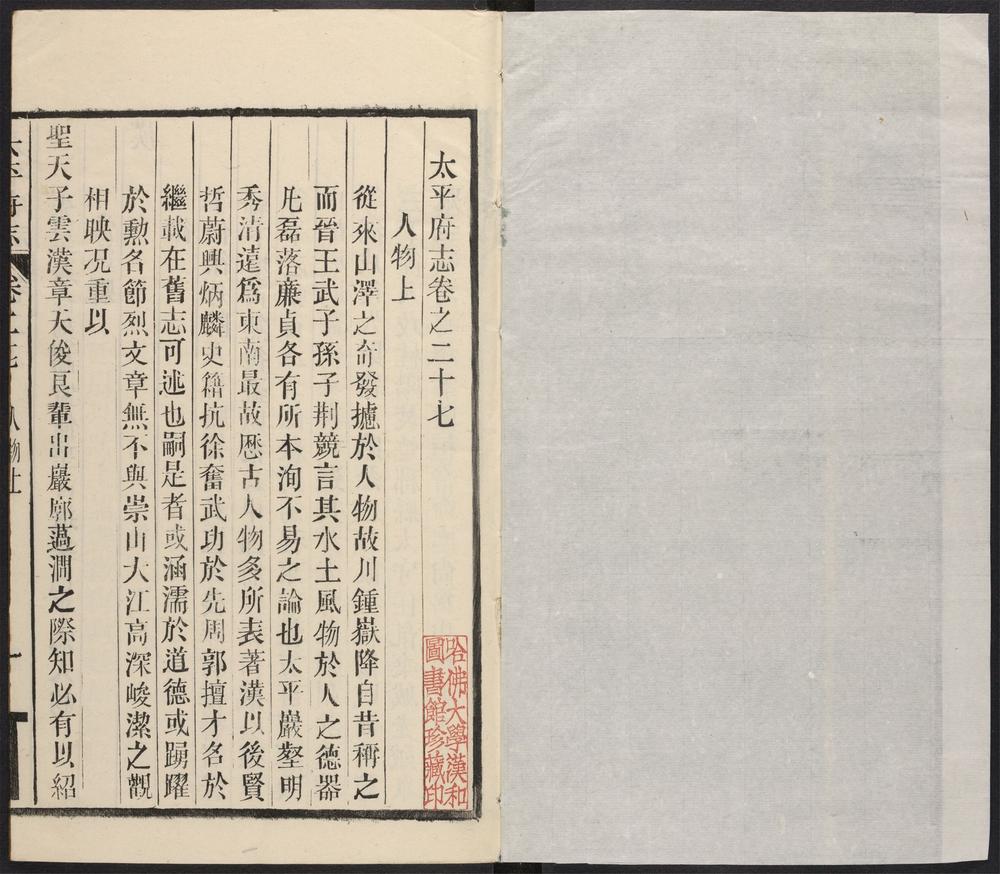 太平府志卷之二十七
人物上
從來山澤之奇發攄於人物故川鍾嶽降自昔稱之
而晉王武子孫子荆競言其水土風物於人之德器
凡磊落亷貞各有所本洵不易之論也太平巖壑明
秀清遠爲東南最故歷古人物多所表著漢以後賢
哲蔚興炳麟史籍抗徐奮武功於先周郭擅才名於
繼載在舊志可述也嗣是者或涵濡於道德或踴躍
於勲名節烈文章無不與崇山大江高深峻潔之觀
相映况重以
聖天子雲漢章天俊良輩出巖廓薖澗之際知必有以紹
太平府志
卷之二十七 人物上
一
哈佛大學漢和
圖書館珍藏印